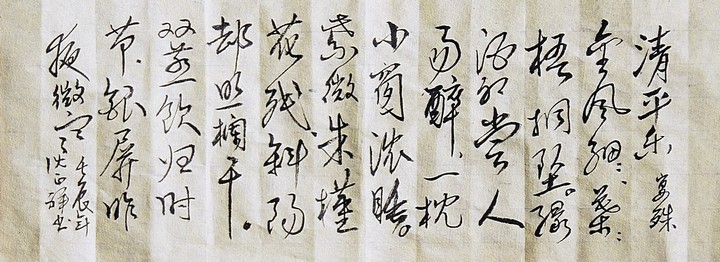 清平乐 晏殊
金风细々、叶々
梧桐坠。绿
酒初尝人
易醉、一枕
小窗浓睡。
紫薇朱槿
花残、斜阳
却照栏干。
双燕欲归时
节、银屏昨
夜微寒
壬辰年
书